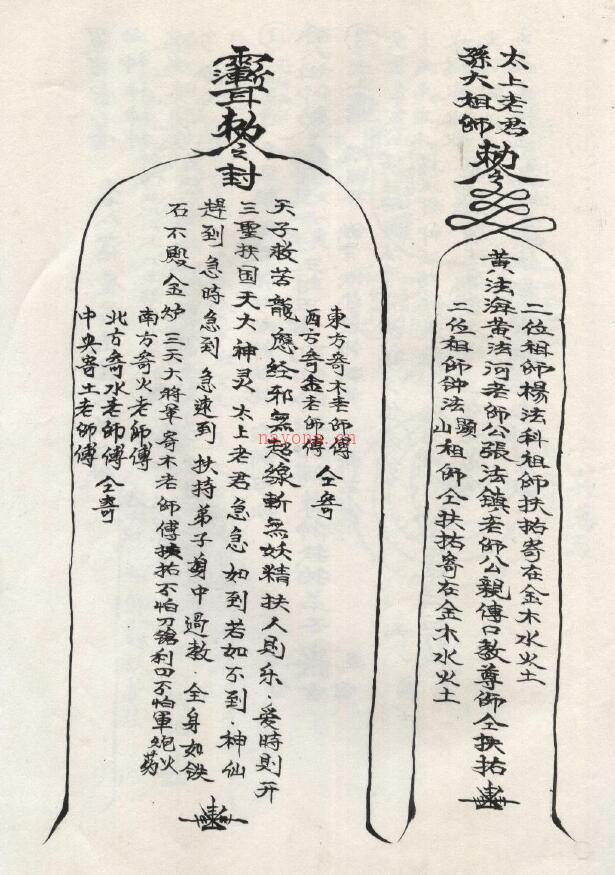 太上老君
孫大祖師
勅令
二位祖師楊法科祖師扶祐寄在金木水火土
黄法海黄法河老師公張法鎮老師公親傳口教尊師仝扶祐
二位祖師鈡法頭山祖師仝扶祐寄在金木水火土
勅令封
東方寄木老師傅
西方寄金老師傅 仝寄
天子救苦龍應经邪無起線斬無妖精扶人則乐.爱時則开
三聖扶国天大神灵 太上老君急急 如到若如不到.神仙
趕到 急時急到 急速到 扶持弟子身中過教.全身如铁
石不毁金炉 三天大將軍寄木老師傅扶祐不怕刀鎗利口不怕軍炮火药
南方寄火老師傅
北方寄水老師傅 仝寄
中央寄土老師傅
nayona.cn